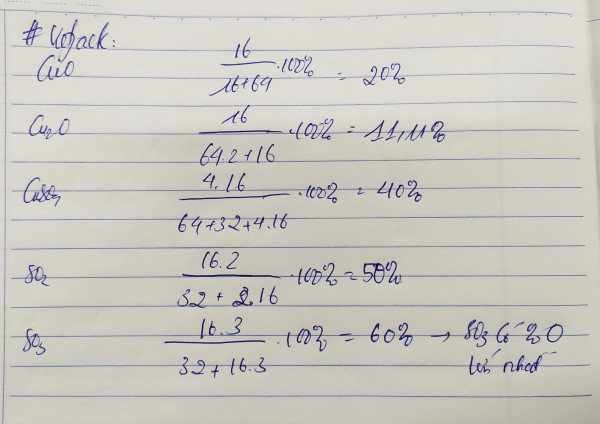 # Uyback:
CuO 16 / 16+64 .100% = 20%
Cu2O 16 / 64.2+16 .100% = 11,11%
CuSO4 4.16 / 64+32+4.16 .100% = 40%
SO2 16.2 / 32+2.16 .100% = 50%
SO3 16.3 / 32+16.3 .100% = 60% → SO3 có %O
lớn nhất